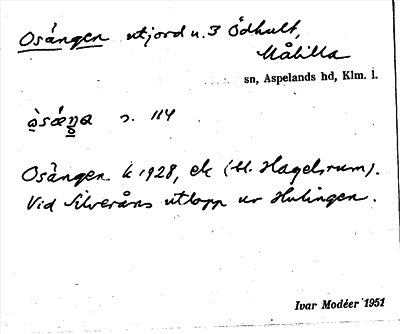 Osången utjord u. 3 Ödhult,
Målilla
sn, Aspelands hd, Klm. l.
s. 114
Osången k 1928, ek (bl. Hagelsrum).
Vid Silveråns utlopp ur Hulingen.
Ivar Modéer 1951